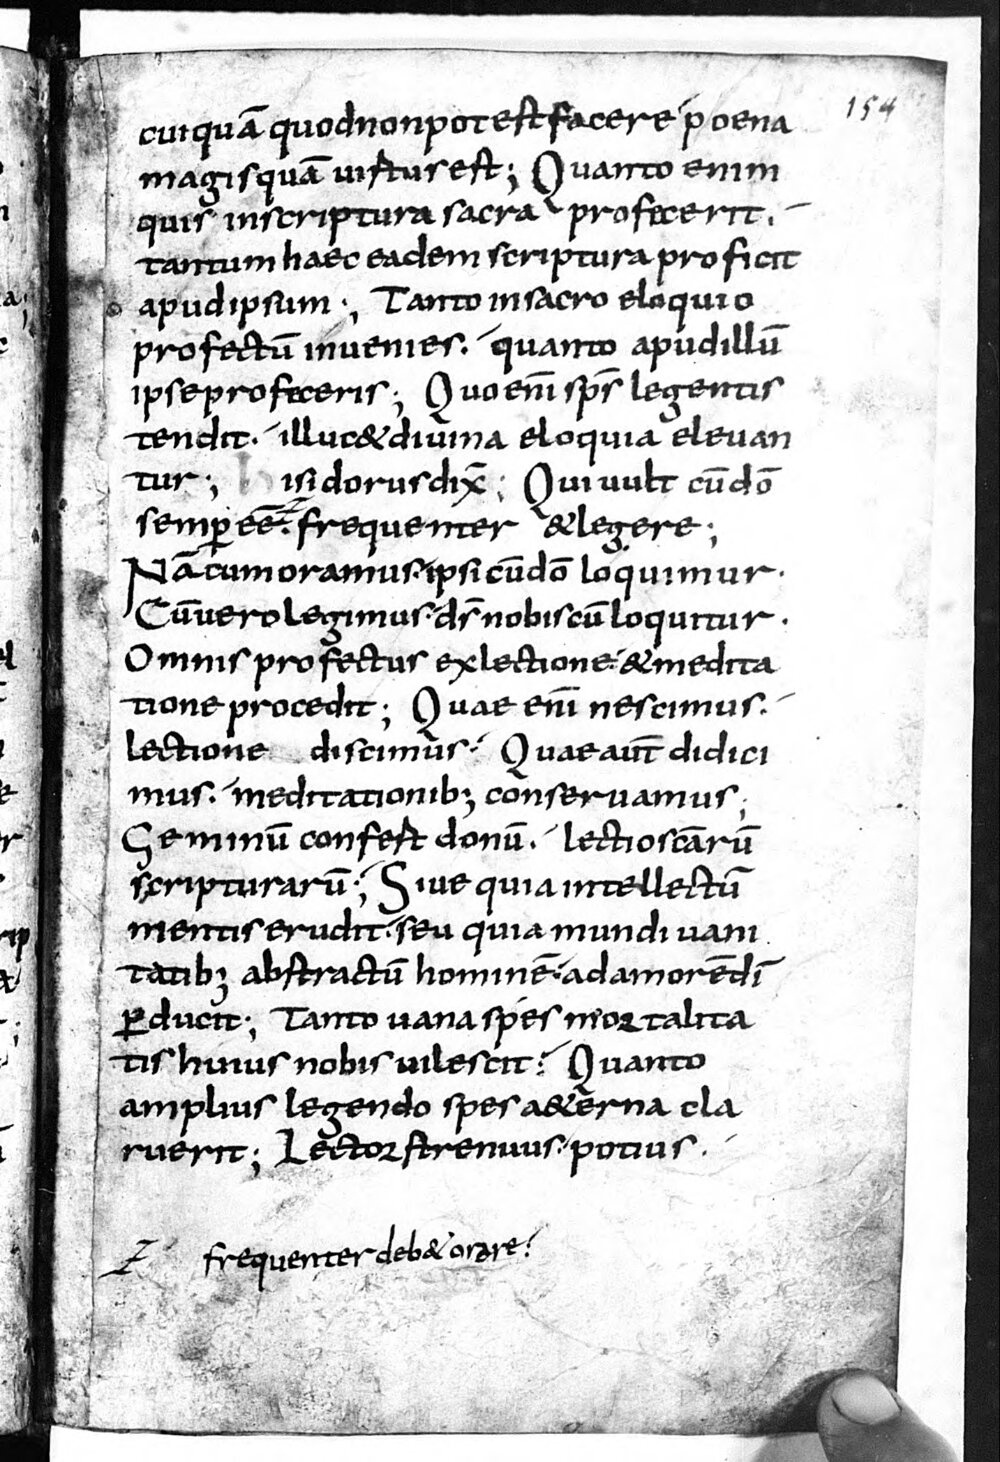 154
cuiquā quod non potest facere poena
magis quā uirtus est; Quanto enim
quis in scriptura sacra profecerit.
tantum haec eadem scriptura proficit
apud ipsum; Tanto in sacro eloquio
profectū inuenies. quanto apud illū
ipse profeceris; Quo eni̅ sp̅s legentis
tendit. illuc & diuina eloquia eleuan
tur; isidorus dix̅; Qui uult cū dō
semꝑ eē. frequenter & legere;
Nā cum oramus. ipsi cū dō loquimur.
Cū uero legimus. ds̅ nobiscū loquitur.
Omnis profectus ex lectione & medita
tione procedit; Quae eni̅ nescimus.
lectione discimus. Quae aut̅ didici
mus. meditationibꝫ conseruamus;
Geminū confert donū. lectio scārū
scripturarū; Siue quia intellectū
mentis erudit. seu quia mundi uani
tatibꝫ abstractū hominē. ad amorē di̅
ꝑducit; Tanto uana spes mortalita
tis huius nobis uilescit. Quanto
amplius legendo spes a&erna cla
ruerit; Lector strenuus. potius.
frequenter deb& orare.